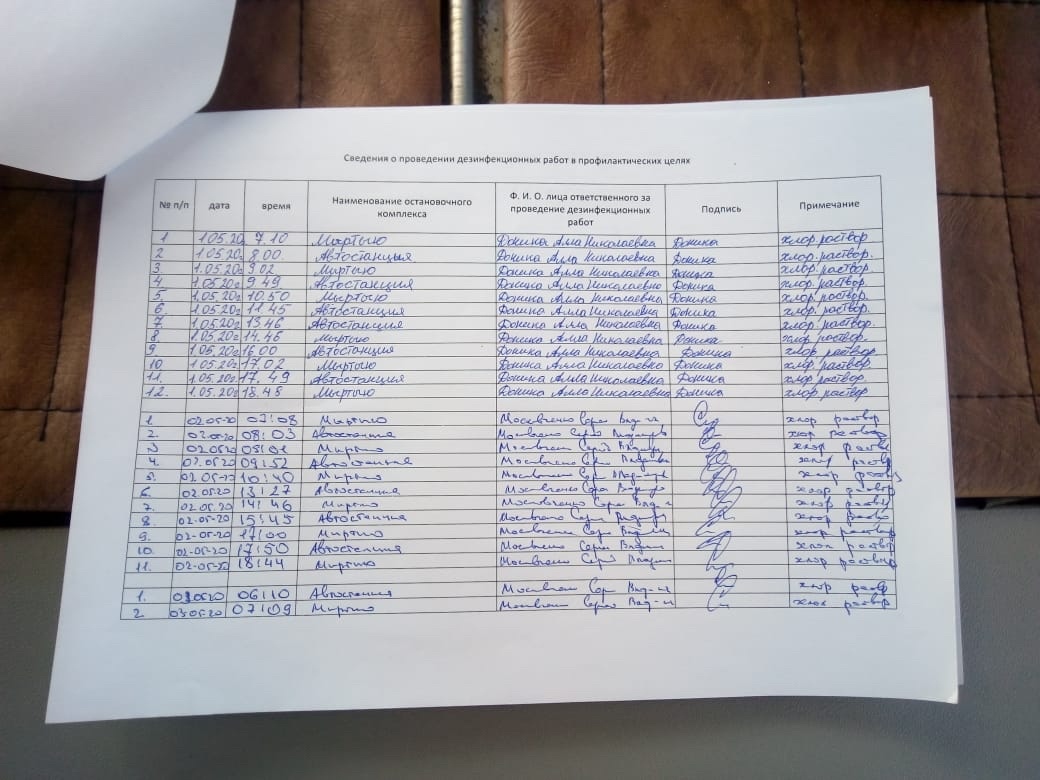 Сведения о проведении дезинфекционных работ в профилактических целях
№ п/п дата время Наименование остановочного комплекса Ф. И. О. лица ответственного за проведение дезинфекционных работ Подпись Примечание
1 1.05.20 7.10 Мыртыю Доника Алла Николаевна Доника хлор.раствор
2 1.05.20г 8.00. Автостанция Доника Алла Николаевна Доника хлор.раствор.
3. 1.05.20г 9.02 Миртыю Доника Алла Николаевна Доника хлор.раствор
4. 1.05.20г 9.49 Автостанция Доника Алла Николаевна Доника хлор.раствор
5. 1.05.20г 10.50 Миртыю Доника Алла Николаевна Доника хлор.раствор
6. 1.05.20г 11.45 Автостанция Доника Алла Николаевна Доника хлор.раствор.
7. 1.05.20г 13.46 Автостанция Доника Алла Николаевна Доника хлор.раствор.
8. 1.05.20г 14.46 Мыртыю Доника Алла Николаевна Доника хлор.раствор
9 1.05.20г 16.00 Автостанция Доника Алла Николаевна Доника хлор.раствор
10 1.05.20г 17.02 Мыртыю Доника Алла Николаевна Доника хлор.раствор
11. 1.05.20г 17.49 Автостанция Доника Алла Николаевна Доника хлор.раствор
12. 1.05.20г 18.45 Мыртыю Доника Алла Николаевна Доника хлор.раствор
1. 02.05.20 07:08 Миртыю Москвченко хлор раствор
2. 02.05.20 08:03 Автостанция Москвченко хлор раствор
3 02.05.20 Миртыю Москвченко хлор раство
4. 02.05.20 09:52 Автостанция Москвченко хлор раствор
5. 02.05.20 10:40 Миртыю Москвченко хлор раствор
6. 02.05.20 13:27 Автостанция Москвченко хлор раствор
7. 02.05.20 14:46 Миртыю Москвченко хлор раствор
8. 02-05-20 15:45 Автостанция Москвченко хлор раство
9. 02-05-20 17:00 Миртыю Москвченко хлор раствор
10. 02-05-20 17:50 Автостанция Москвченко хлор раствор
11. 02-05-20 18:44 Миртыю Москвченко хлор раствор
1. 03.05.20 06:10 Автостанция Москвченко хлор раствор
2 03.05.20 07:09 Миртыю Москвченко хлор раствор